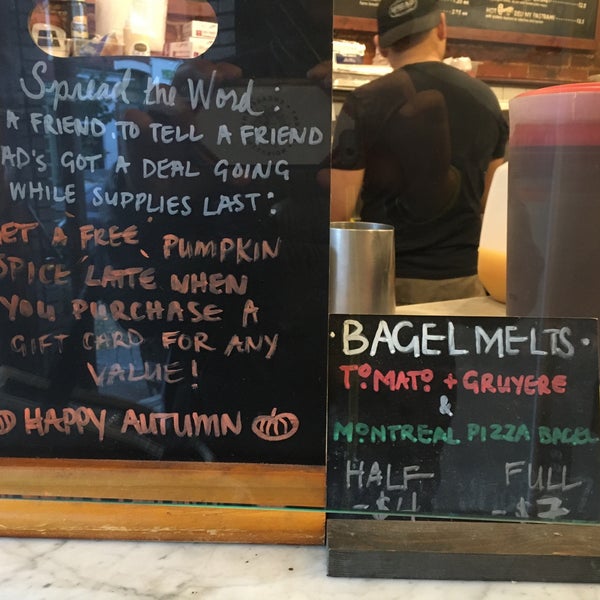 Spread the Word:
A FRIEND TO TELL A FRIEND
AD'S GOT A DEAL GOING
WHILE SUPPLIES LAST:
ET A FREE PUMPKIN
SPICE LATTE WHEN
YOU PURCHASE A
GIFT CARD FOR ANY
VALUE!
HAPPY AUTUMN
·BAGEL MELTS·
TOMATO + GRUYERE
&
MONTREAL PIZZA BAGEL
HALF FULL
-$4 -$7